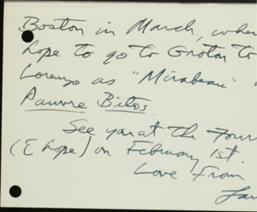 Boston in March, when
hope to go to Groton to
Lorenzo as "Mirabeau"
Pauvre Bitos.
See you at the Four
(I hope) on February 1st.
Love From